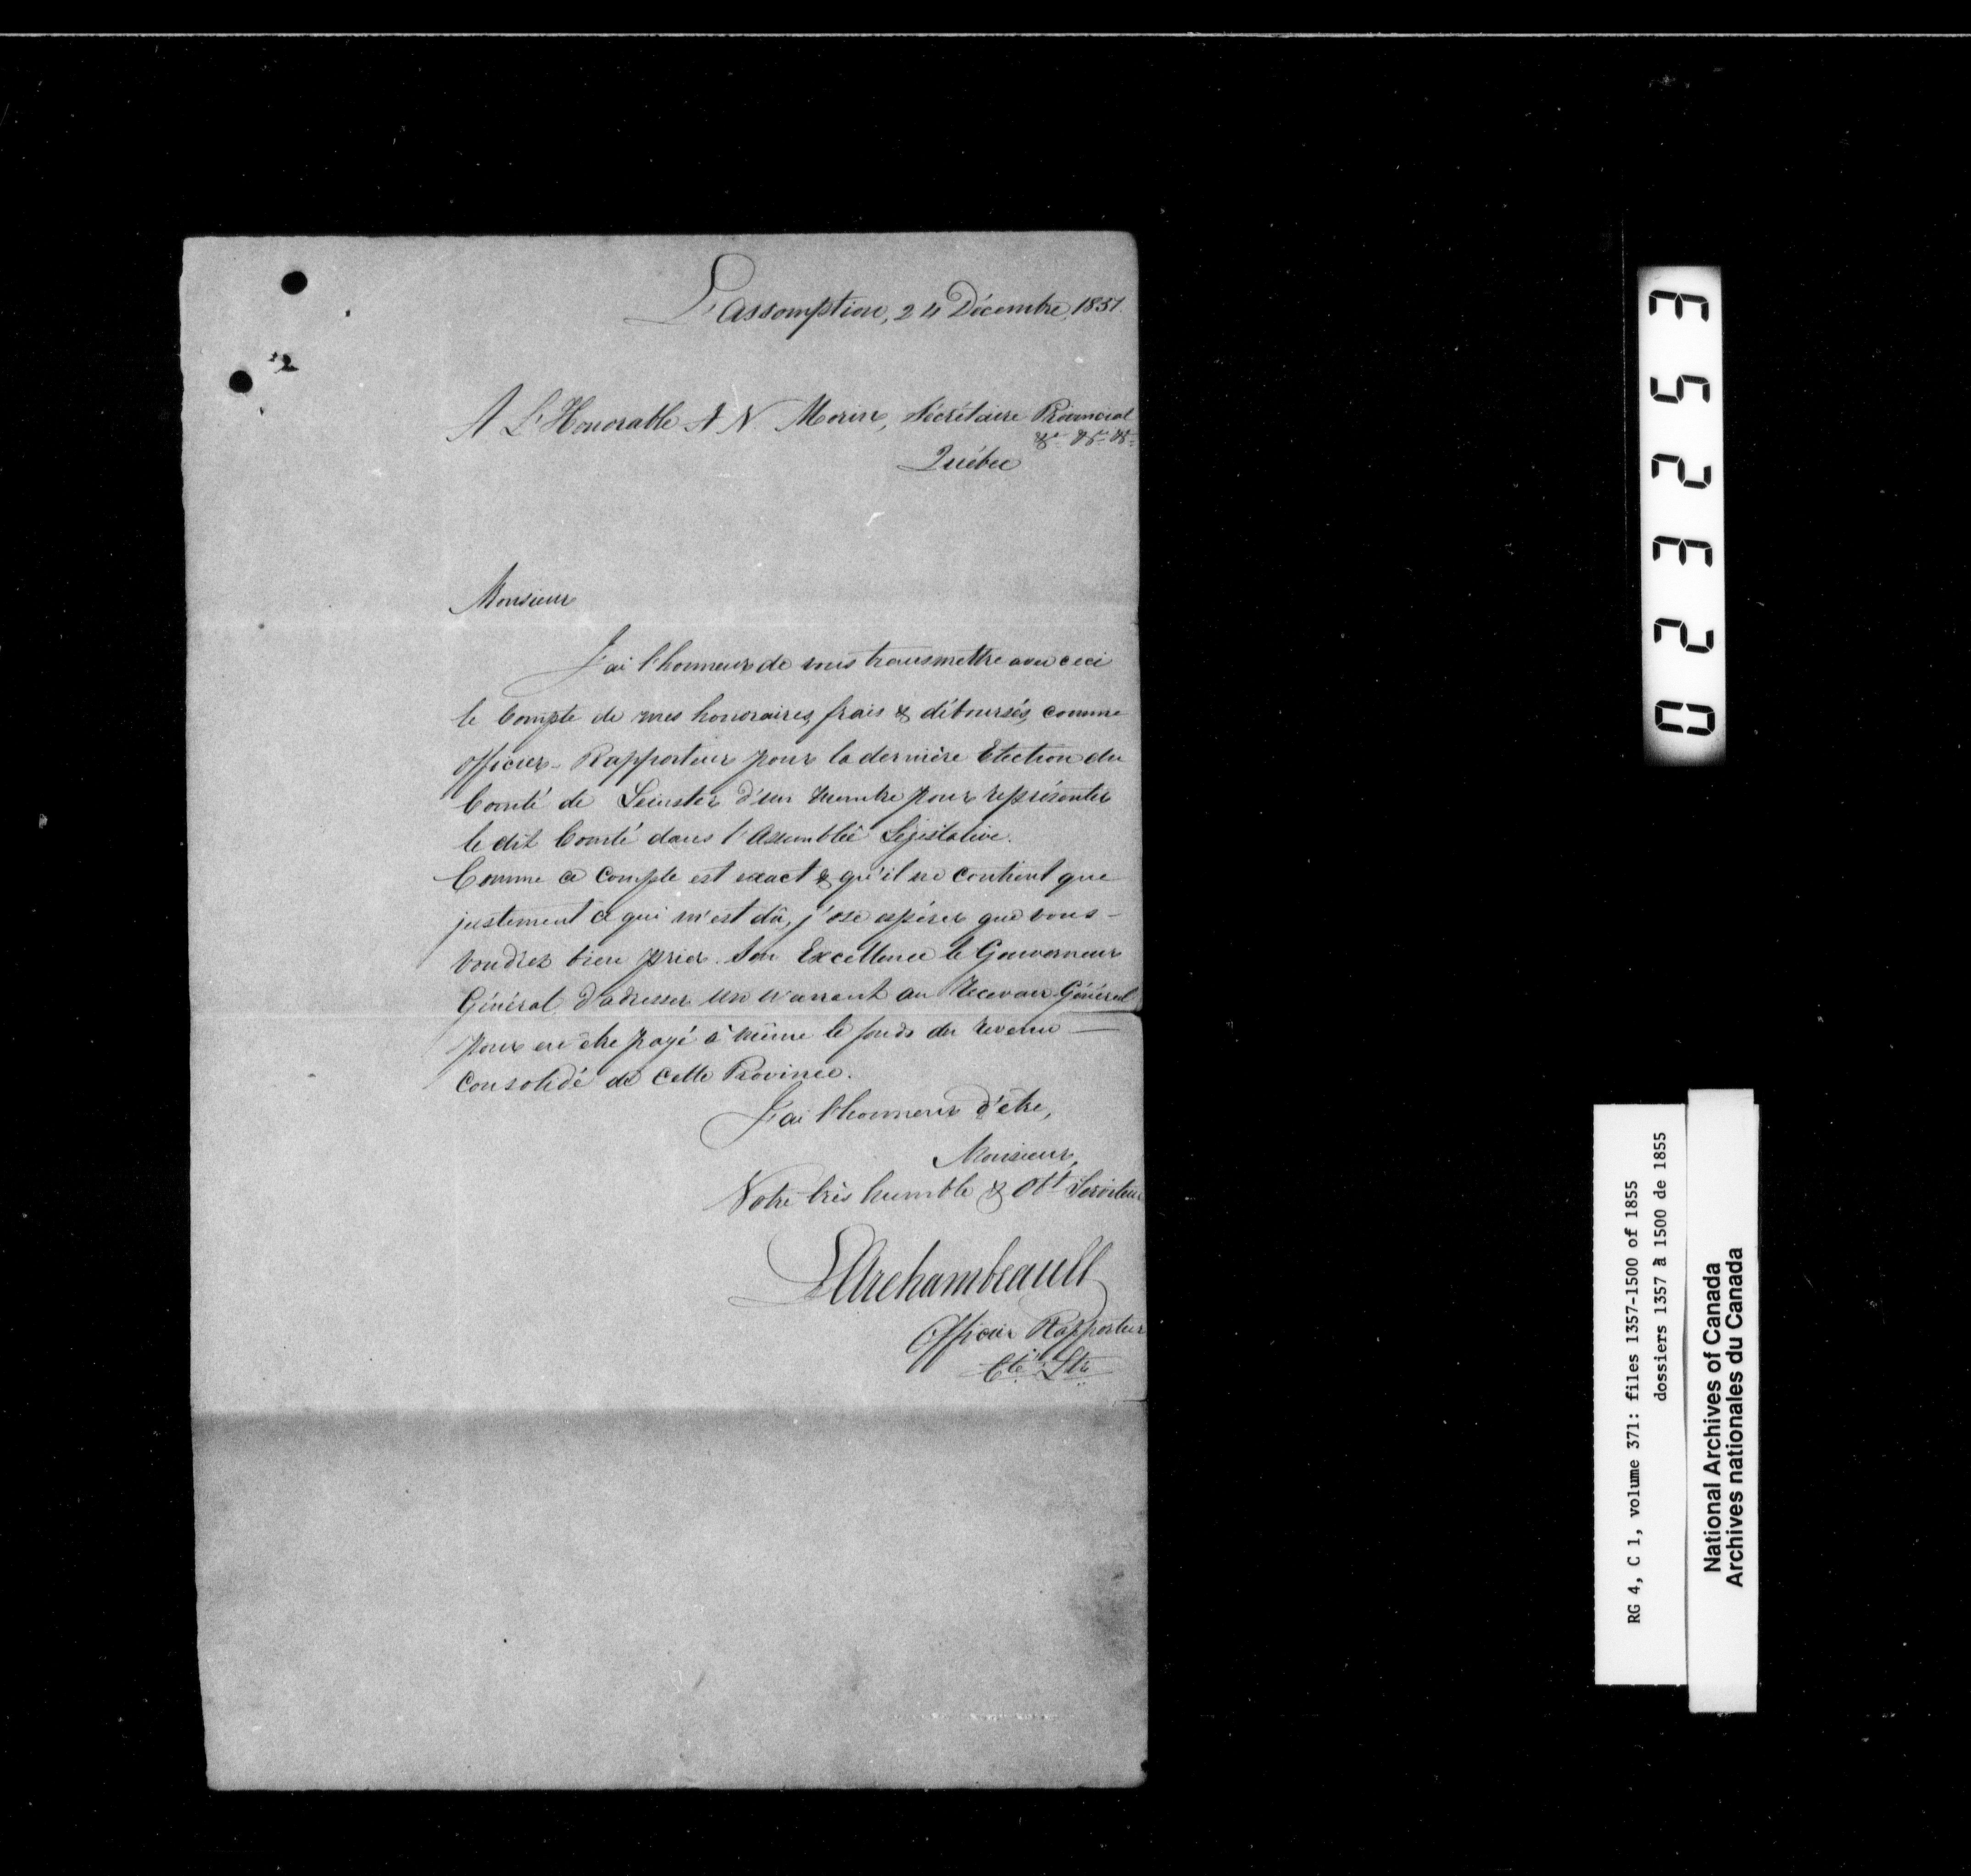 L'assomption, 24 Décembre, 1851.
2
A L'Honorable A N Morin, Sécrétaire Provincial
&c &c &c
Québec
Monsieur
J'ai l'honneur de vous transmettre avec ceci
le Compte de mes honoraires, frais & déboursés, comme
officier-Rapporteur pour la dernière Election du
Comté de Leinster d'un Membre pour représenter
le dit Comté dans l'Assemblée Législative.
Comme ce Compte est exact & qu'il ne contient que
justement ce qui m'est dû, j'ose espérer que vous
voudrez bien prier Son Excellence le Gouverneur
Général d'adresser un warrant au Receveur Général
pour en être payé à même le fonds du revenu
Consolidé de cette Province.
J'ai l'honneur d'être,
Monsieur,
Votre très humble & Obt Serviteur
L Archambeault
Officier Rapporteur
Cté Ltr
E52320
RG 4, C 1, volume 371: files 1357-1500 of 1855
dossiers 1357 à 1500 de 1855
National Archives of Canada
Archives nationales du Canada